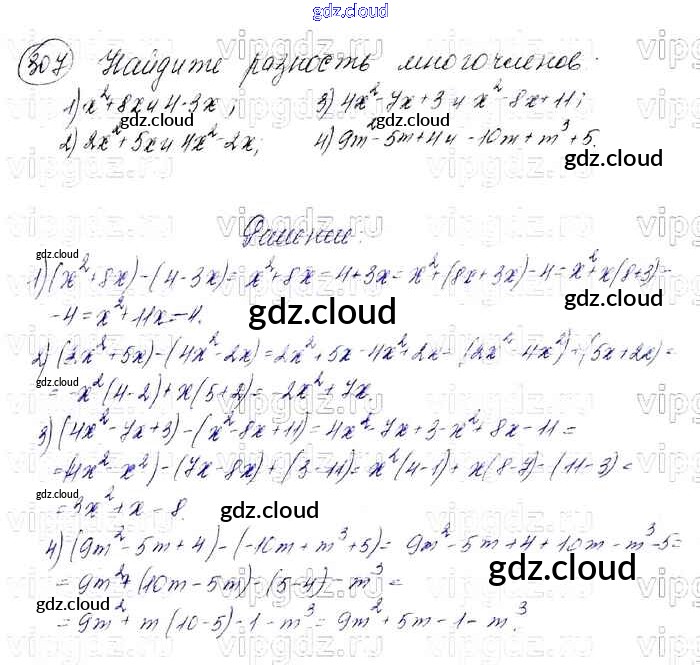 gdz.cloud
307 Найдите разность многочленов.
1) x²+8x и 4-3x; 3) 4x²-7x+3 и x²-8x+11;
2) 2x²+5x и 4x²-2x; 4) 9m²-5m+4 и -10m+m³+5.
gdz.cloud
Решение:
gdz.cloud
1) (x²+8x)-(4-3x)= x²+8x-4+3x= x²+(8x+3x)-4= x²+x(8+3)-
gdz.cloud
-4= x²+11x-4.
gdz.cloud
2) (2x²+5x)-(4x²-2x)=2x²+5x-4x²+2x= (2x²-4x²)+(5x+2x)=
gdz.cloud
= -x²(4-2)+x(5+2)= -2x²+7x.
3) (4x²-7x+3)-(x²-8x+11)=4x²-7x+3-x²+8x-11=
=(4x²-x²)-(7x-8x)+(3-11)=x²(4-1)+x(8-7)-(11-3)=
gdz.cloud
=3x²+x-8.
gdz.cloud
4) (9m²-5m+4)-(-10m+m³+5)= 9m²-5m+4+10m-m³-5=
gdz.cloud
=9m²+(10m-5m)-(5-4)-m³=
gdz.cloud
=9m²+m(10-5)-1-m³= 9m²+5m-1-m³.